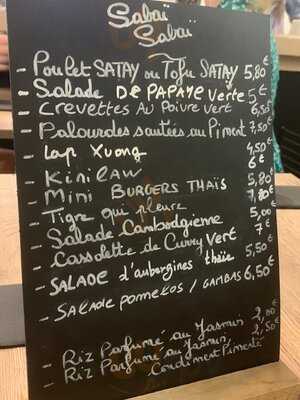 Sabaï
Sabaï
- Poulet SATAY ou Tofu SATAY 5,80€
- Salade DE PAPAYE Verte 5€
- Crevettes Au Poivre Vert 6,50€
- Palourdes sautées au Piment 7,50€
- Lap Xuong 4,50€
- Kinilaw 6€
- Mini BURGERS THAÏS 5,80€
- Tigre qui pleure 7,80€
- Salade Cambodgienne 5,00€
- Cassolette de Curry Vert 7€
- SALADE d'aubergines thaïe 5,50
- SALADE pomelos / GAMBAS 6,50€
- Riz Parfumé au Jasmin 2,00€
- Riz Parfumé au Jasmin, 2,50€
Condiment Pimenté